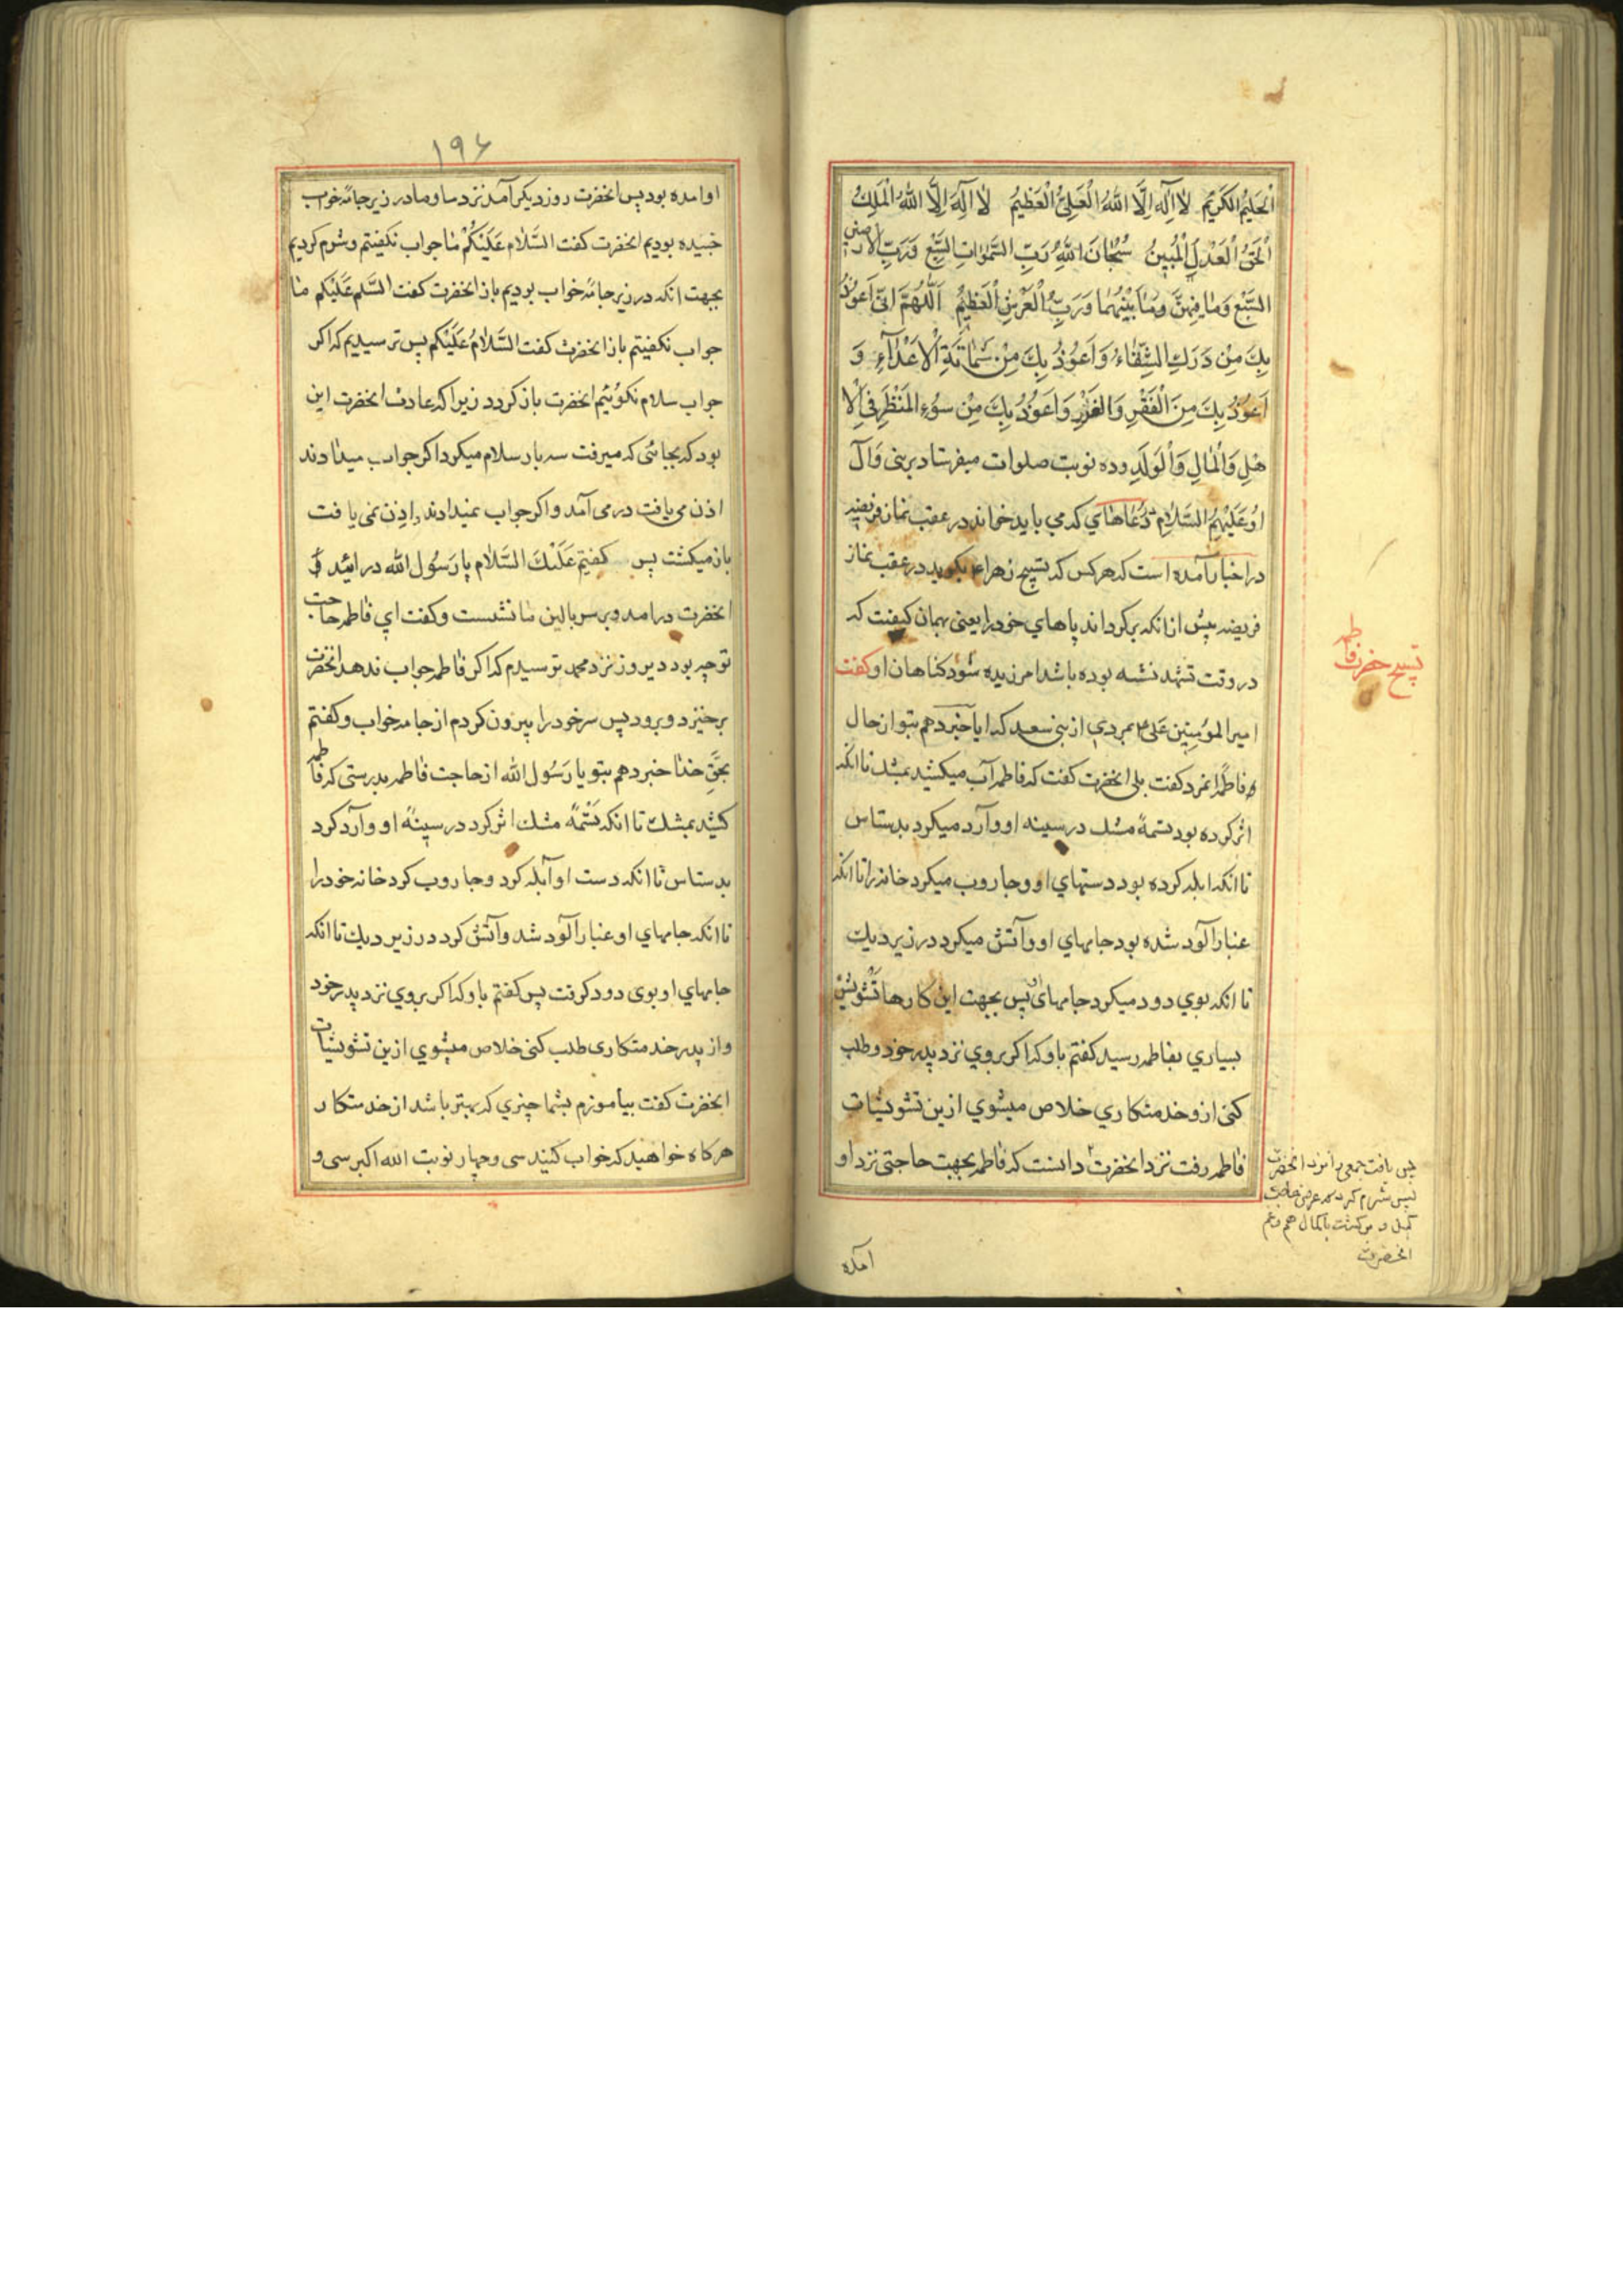 اَلْحَليمُ الكَريمُ لا اِلٰهَ اِلَّا اللّٰهُ الْعَلِيُّ الْعَظيمُ لا اِلٰهَ اِلَّا اللّٰهُ الْمَلِكُ
اَلْحَقُّ الْعَدْلُ الْمُبينُ سُبْحانَ اللّٰهِ رَبِّ السَّمٰواتِ السَّبْعِ وَرَبِّ الارضين
السَّبْعِ وَمٰا فيهِنَّ وَمٰا بَيْنَهُما وَرَبِّ الْعَرْشِ الْعَظيمُ اَللّٰهُمَّ اِنّى اَعوُذُ
بِكَ مِنْ دَرَكِ الشِّقٰاءِ وَاَعوُذُ بِكَ مِنْ شَمٰاتَةِ الْاَعْدٰآءِ وَ
اَعوُذُ بِكَ مِنَ الْفَقْرِ وَالْفَزَرِ وَاَعوُذُ بِكَ مِنْ سوُءِ المَنْظَرِ فىِ الْا
هْلِ وَالْمٰالِ وَالْوَلَدِ وده نوبت صلوات ميفرستاد بر نبى وَآل
اوُ عَلَيْهِمُ السَّلام دُعٰاهٰاي كه مي بايد خواند در عقب نماز فريضه
در اخبار آمده است كه هر كس كه تسبيح زهراء بگويد در عقب نماز
فريضه پيش از انكه برگرداند پاهاي خود را يعنى بهمان كيفيت كه
در وقت تشهد نشسه بوده باشد امرزيده شود كناهان او كفت
امير المؤمنين على ع بمردي از بنى سعيد كه ايا خبر دهم بتو از حال
فاطمه انمرد كفت بلى انحضرت كفت كه فاطمه آب ميكشيد بمشك تا انكه
اثر كرده بود تسمهٔ مشك در سينه او وآرد ميكرد بدستاس
تا انكه ابله كرده بود دستهاي او وجاروب ميكرد خانه را تا انكه
غبار آلود شده بود جامهاي او وآتش ميكرد در زير ديك
تا انكه بوي دود ميكرد جامهاى پس بجهت اين كارها تشويش
بسياري بفاطمه رسيد كفتم باو كه اكر بروي نزد پدر خود وطلب
كنى از و خدمتكاري خلاص ميشوي ازين تشويشات
فاطمه رفت نزد انحضرت دانست كه فاطمه بجهت حاجتى نزد او
تسبيح حضرت فاطمه
پس يافت جمعى را نزد انحضرت
پس شرم كرد كه عرض حاجت
انحضرت
امده
١٩٤
او امده بود پس انحضرت روز ديكر آمد نزد ما وما در زير جامهٔ خواب
خبيده بوديم انحضرت كفت السَّلٰام عَلَيْكُمْ مٰا جواب نكفيتم وشرم كرديم
بجهت انكه در زير جامهٔ خواب بوديم باز انحضرت كفت السَّلم عَلَيْكم مٰا
جواب نكفيتم باز انحضرت كفت السَّلٰامُ عَلَيْكم پس ترسيديم كه اكر
جواب سلام نكوئيم انحضرت باز كردد زيرا كه عادت انحضرت اين
بود كه بجائى كه ميرفت سه بار سلام ميكرد اكر جواب ميدادند
اذن مى يافت در مى آمد و اكر جواب نميدادند و اذن نمى يافت
باز ميكشت پس كفتيم عَلَيْكَ السَّلٰام يا رَسُول الله در ائيد
انحضرت در امد و بر سر بالين مٰا نشست وكفت اي فاطمه حاجت
تو چه بود ديروز نزد محمد ترسيدم كه اكر فاطمه جواب ندهد انحضرت
برخيزد و برود پس سر خود را بيرون كردم از جامه خواب وكفتم
بحَقِّ خدا خبر دهم بتو يا رَسُول الله از حاجت فاطمه بدرستى كه فاطمه
كشيد بمشك تا انكه تَسْمهٔ مشك اثر كرد در سينهٔ او وآرد كرد
بدستاس تا انكه دست او آبله كرد و جاروب كرد خانه خود را
تا انكه جامهاي او غبار آلود شد وآتش كرد در زير ديك تا انكه
جامهاي او بوى دود كرفت پس كفتم باو كه اكر بروي نزد پدر خود
و از پدر خدمتكارى طلب كنى خلاص ميشوي ازين تشويشات
انحضرت كفت بياموزم بشما چيزي كه بهتر باشد از خدمتكار
هركاه خواهيد كه خواب كنيد سى وچهار نوبت الله اكبر سى و